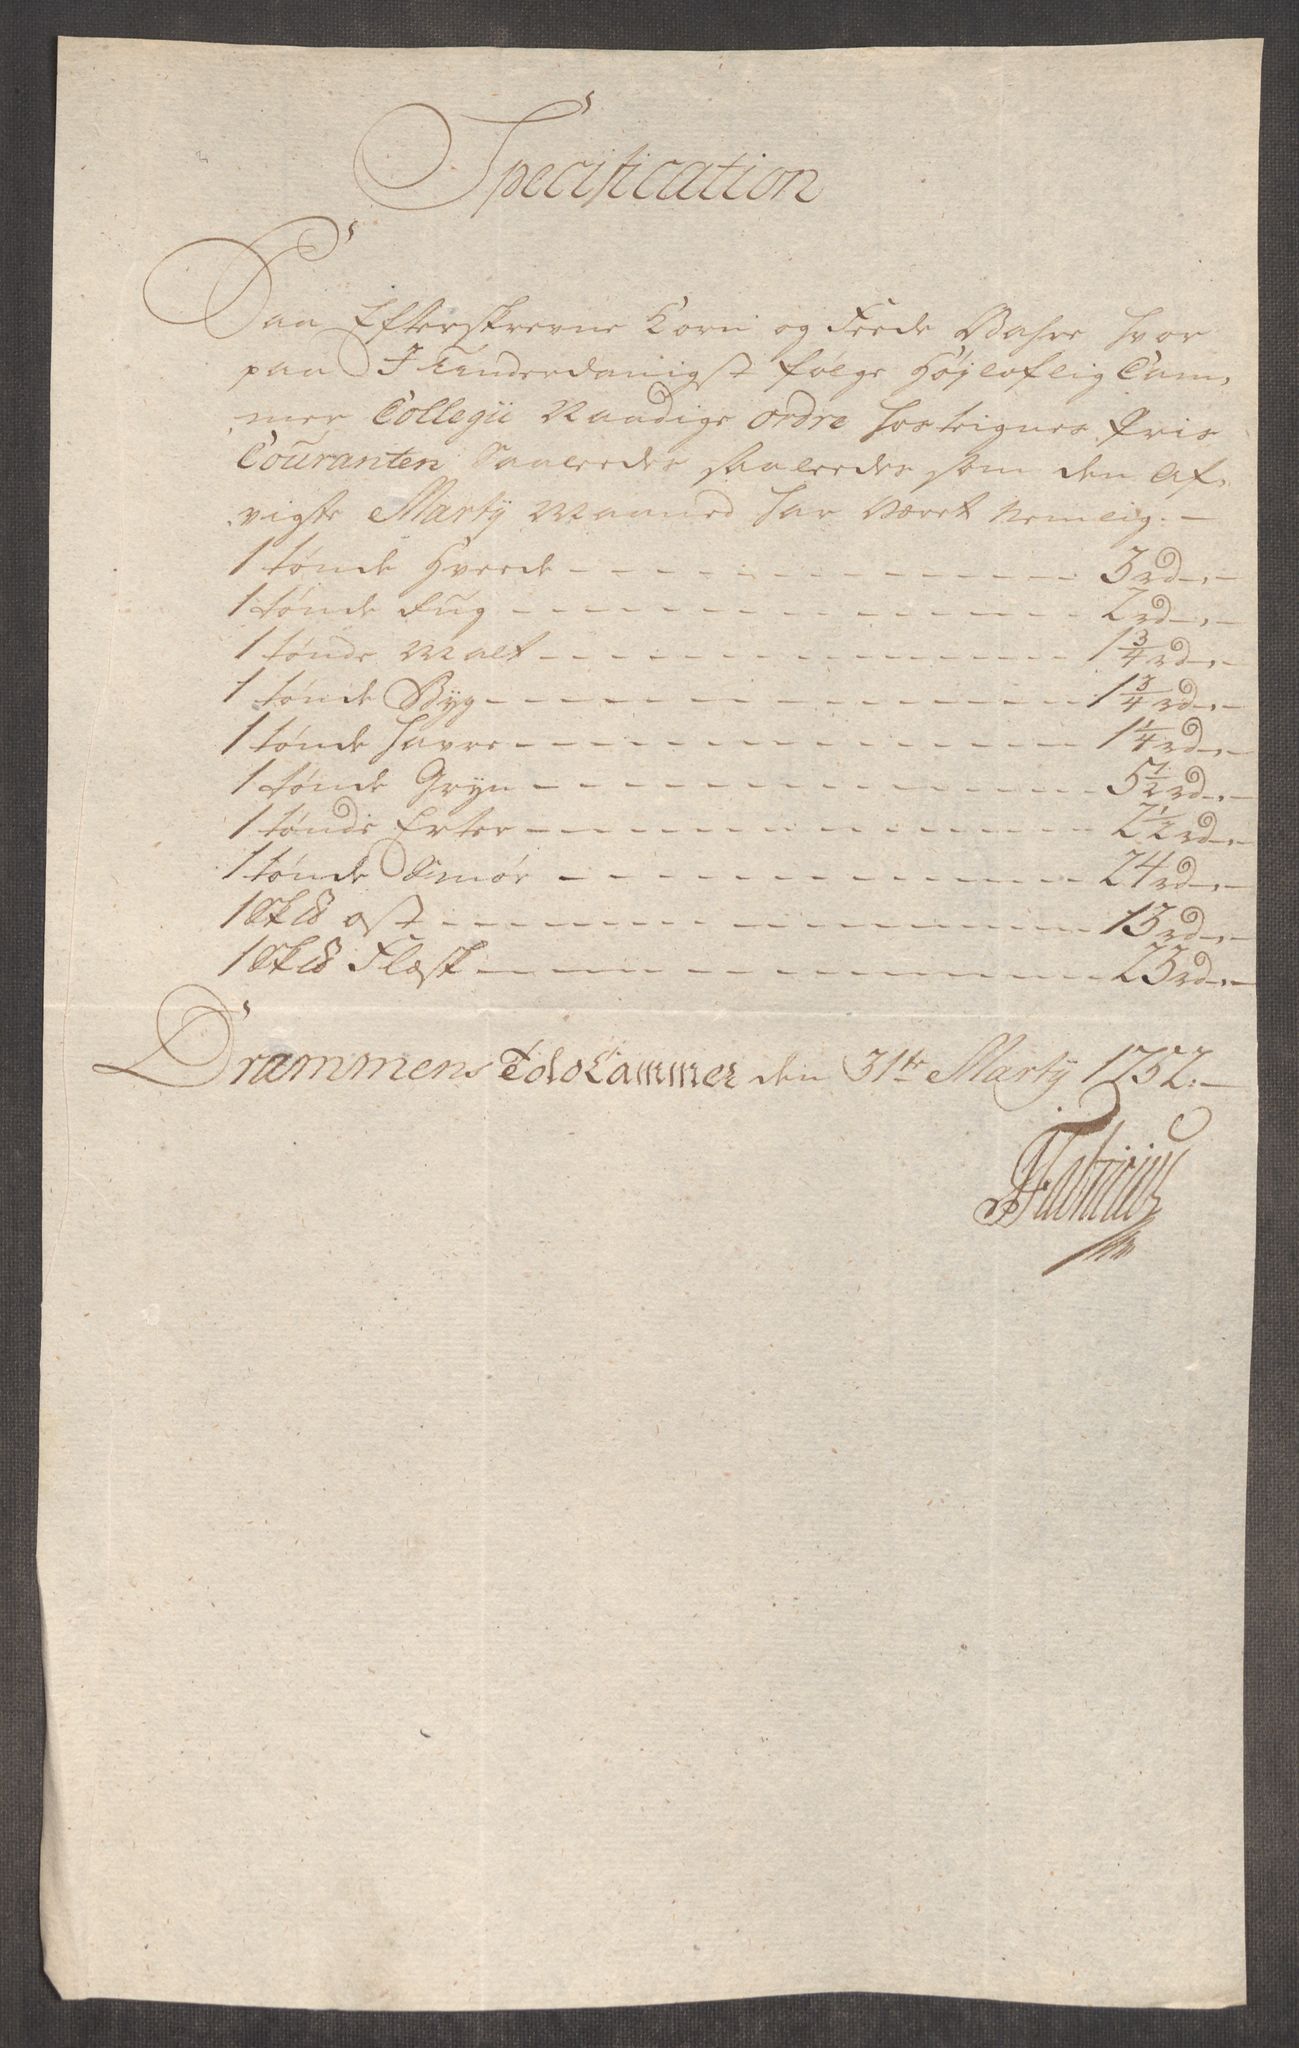 Specification
Paa Efterskrevne Korn og Feede Vahre hvor
paa I Underdanigst følge Høyloflig Cam,
mer Collegii Naadige ordre hosteignes Pris
Couranten Saaleedes saaleedes som den af,
vigte Martÿ Maaned har Været Nemlig. -
1 tønde Hveede - - - 3 rd -,-
1 tønde Rug - - - 2 rd -,-
1 tønde Malt - - - 1 3/4 rd -,-
1 tønde Byg - - - 1 3/4 rd -,-
1 tønde Havre - - - 1 1/4 rd -,-
1 tønde Gryn - - - 5 1/2 rd -,-
1 tønde Erter - - - 2 1/2 rd -,-
1 tønde Smør - - - 24 rd -,-
1 Sk ℔ ost - - - 13 rd -,-
1 Sk ℔ Flæsk - - - 23 rd -,-
Drammens Toldkammer den 31te Martÿ 1752. -
Fabricius